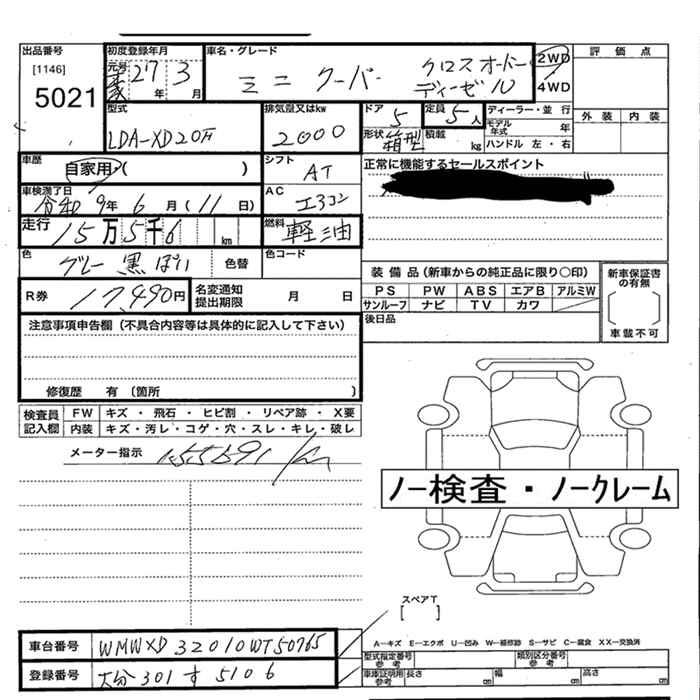 出品番号
[1146]
5021
初度登録年月
元号
27年 3月
車名・グレード
ミニ クーパー
クロスオーバー
ディーゼル
2WD
4WD
評価点
外装 内装
型式
LDA-XD20F
排気量又はkw
2000
ドア
5
定員
5人
形状
箱型
積載
kg
ディーラー・並行
モデル年式 年
ハンドル 左・右
車歴
自家用 ( )
シフト
AT
正常に機能するセールスポイント
車検満了日
令和 9年 6月 (11日)
AC
エアコン
走行
15万5千6 km
燃料
軽油
色
グレー 黒っぽい
色替
色コード
R券
17,490円
名変通知
提出期限
月 日
装備品 (新車からの純正品に限り〇印)
PS PW ABS エアB アルミW
サンルーフ ナビ TV カワ
後日品
新車保証書
の有無
車載不可
注意事項申告欄 (不具合内容等は具体的に記入して下さい)
修復歴 有 (箇所 )
検査員
記入欄
FW キズ・飛石・ヒビ割・リペア跡・X要
内装 キズ・汚レ・コゲ・穴・スレ・キレ・破レ
メーター指示
155591 km
ノー検査・ノークレーム
スペアT
[ ]
A-キズ E-エクボ U-凹み W-補修跡 S-サビ C-腐食 XX-交換済
車台番号
WMWXD32010WT50765
登録番号
大分 301 す 5106
型式指定番号
参考
類別区分番号
参考
車庫証明用
参考
長さ cm 幅 cm 高さ cm